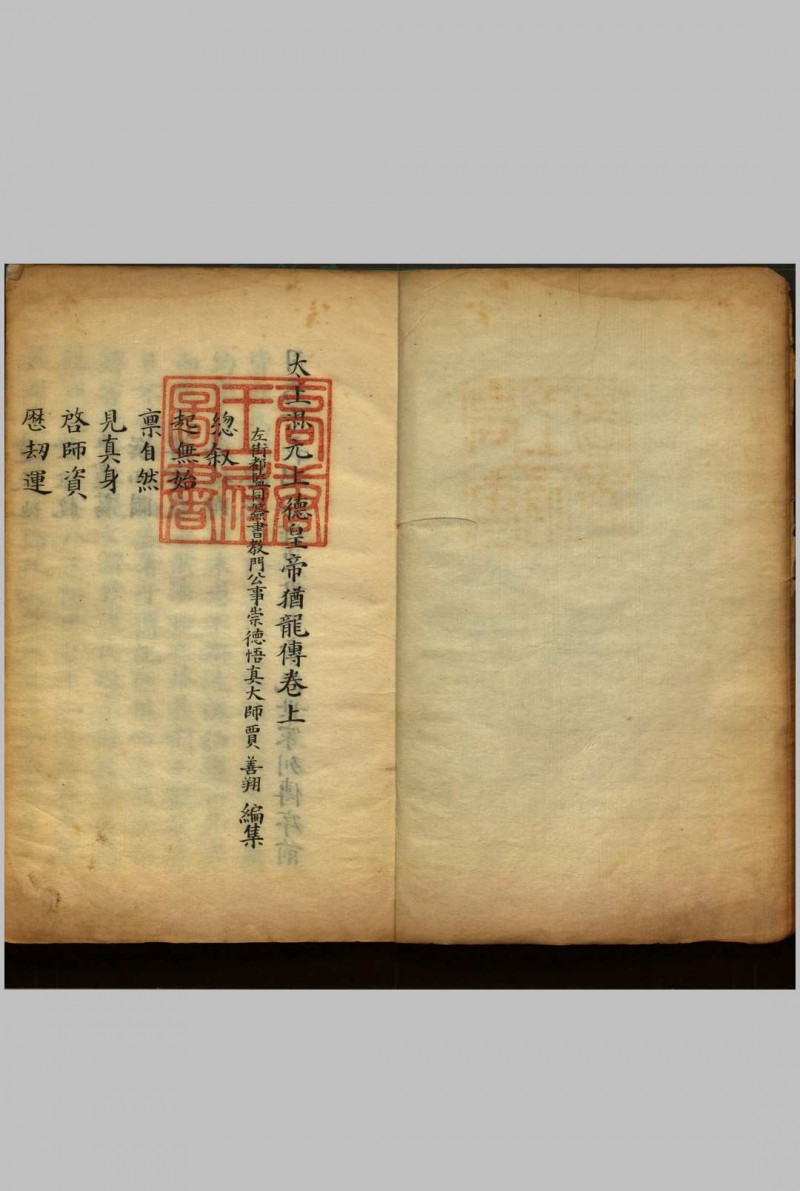 太上混元上德皇帝猶龍傳卷上
左街都監同簽書教門公事崇德悟真大師賈善翔編集
緫叙
起無始
稟自然
見真身
啓師資
歷刼運